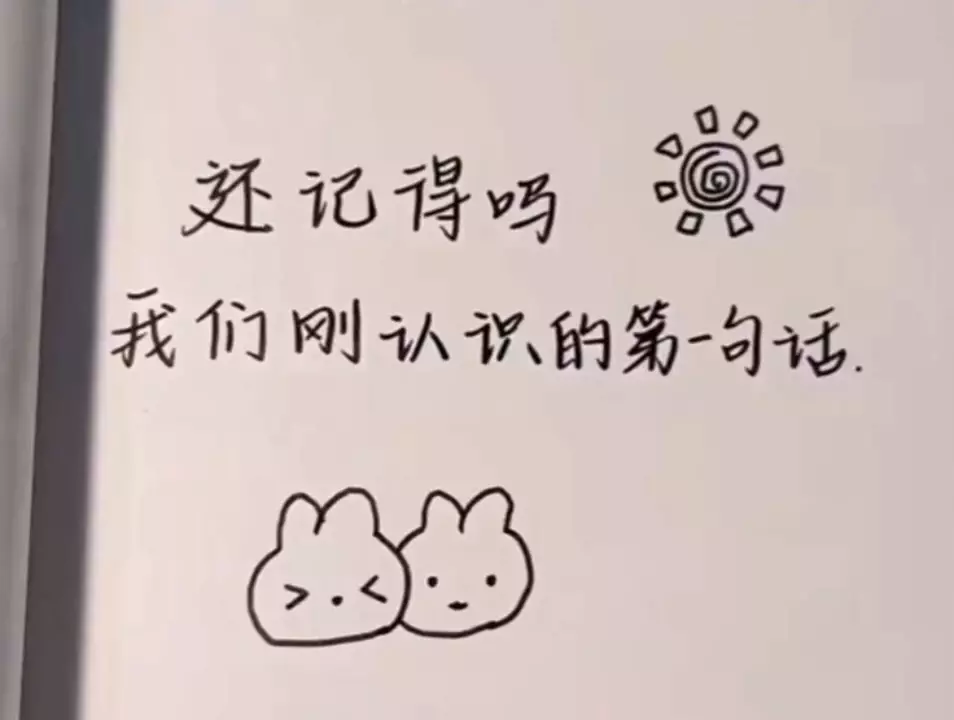 还记得吗
我们刚认识的第一句话.